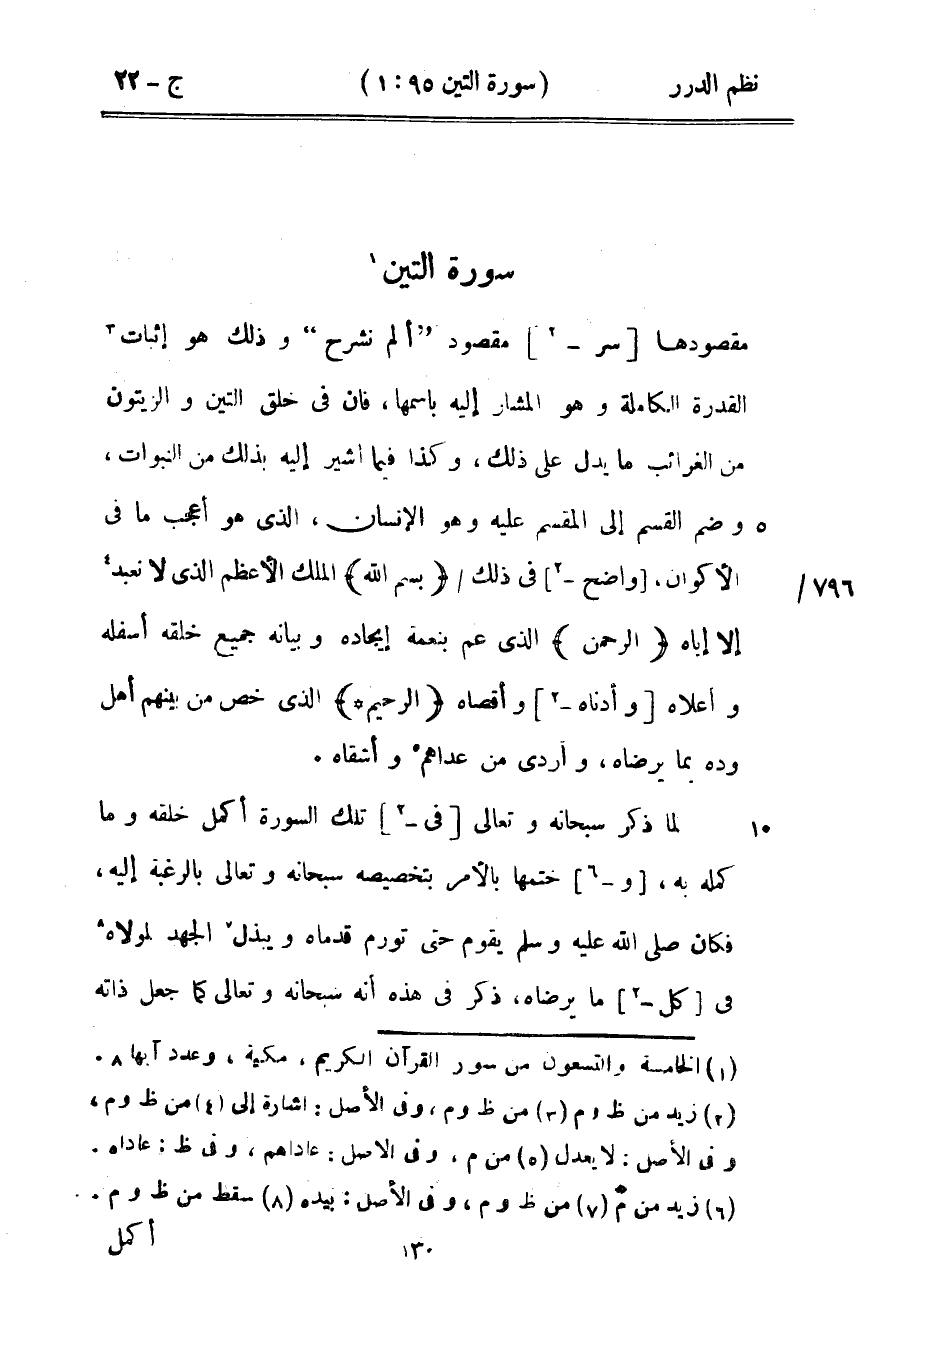 نظم الدرر (سورة التين ٩٥ : ١) ج - ٢٢
سورة التين ١
مقصودها [ سر - ٢ ] مقصود "ألم نشرح" و ذلك هو إثبات ٣
القدرة الكاملة و هو المشار إليه باسمها، فان فى خلق التين و الزيتون
من الغرائب ما يدل على ذلك، و كذا فيما أشير إليه بذلك من النبوات،
٥ و ضم القسم إلى المقسم عليه و هو الإنسان، الذى هو أعجب ما فى
٧٩٦/ الأكوان، [واضح - ٢] فى ذلك / ﴿ بسم الله ﴾ الملك الأعظم الذى لا نعبد ٤
إلا إياه ﴿ الرحمن ﴾ الذى عم بنعمة إيجاده و بيانه جميع خلقه أسفله
و أعلاه [ و أدناه - ٢ ] و أقصاه ﴿ الرحيم * ﴾ الذى خص من بينهم أهل
وده بما يرضاه، و أردى من عداهم ٥ و أشقاه .
١٠ لما ذكر سبحانه و تعالى [ فى - ٢ ] تلك السورة أكمل خلقه و ما
كمله به، [ و - ٦ ] ختمها بالأمر بتخصيصه سبحانه و تعالى بالرغبة إليه،
فكان صلى الله عليه و سلم يقوم حتى تورم قدماه و يبذل ٧ الجهد لمولاه ٨
فى [ كل - ٢ ] ما يرضاه، ذكر فى هذه أنه سبحانه و تعالى كما جعل ذاته
(١) الخامسة والتسعون من سور القرآن الكريم ، مكية ، وعدد آيها ٨ .
(٢) زيد من ظ و م (٣) من ظ و م ، وفى الأصل : اشارة إلى (٤) من ظ و م ،
و فى الأصل : لا يعدل (٥) من م ، و فى الاصل : عاداهم ، و فى ظ : عاداه .
(٦) زيد من م (٧) من ظ و م ، و فى الأصل : بيده (٨) سقط من ظ و م .
أكمل
١٣٠